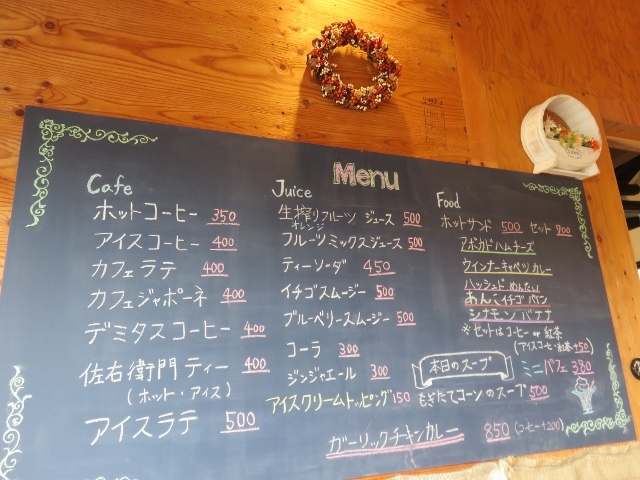 Menu
Cafe
ホットコーヒー 350
アイスコーヒー 400
カフェラテ 400
カフェジャポーネ 400
デミタスコーヒー 400
佐右衛門ティー 400
(ホット・アイス)
アイスラテ 500
Juice
生搾りフルーツ ジュース 500
オレンジ
フルーツミックスジュース 500
ティーソーダ 450
イチゴスムージー 500
ブルーベリースムージー 500
コーラ 300
ジンジャエール 300
アイスクリームトッピング 150
Food
ホットサンド 500 セット 700
アボカドハムチーズ
ウインナーキャベツカレー
ハッシュドめんたい
あんこイチゴパン
シナモンバナナ
※セットはコーヒー or 紅茶
(アイスコーヒー・紅茶+50)
本日のスープ
もぎたてコーンのスープ 500
ミニパフェ 380
ガーリックチキンカレー 850 (コーヒー+200)